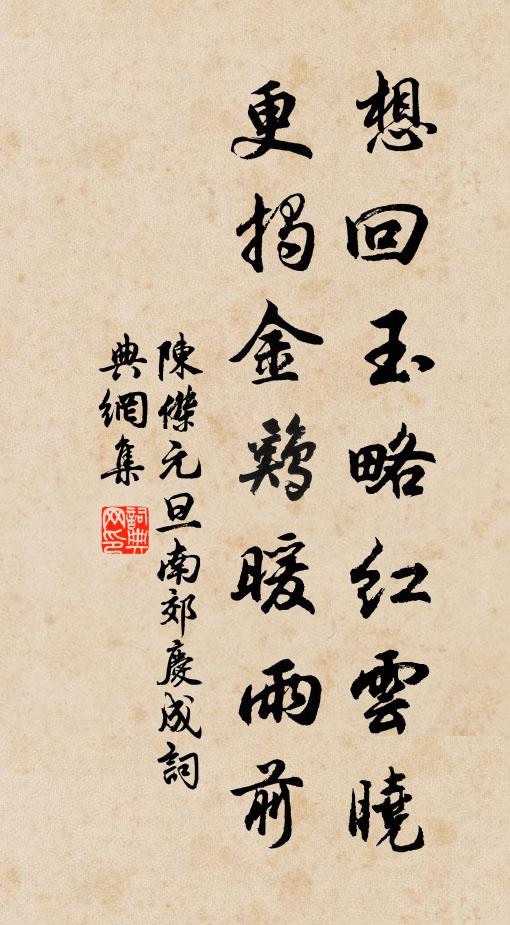 想回玉略紅雲曉
更揭金鷄暖雨前
陳傑元旦南郊慶成詞
典網集
詞典
网印